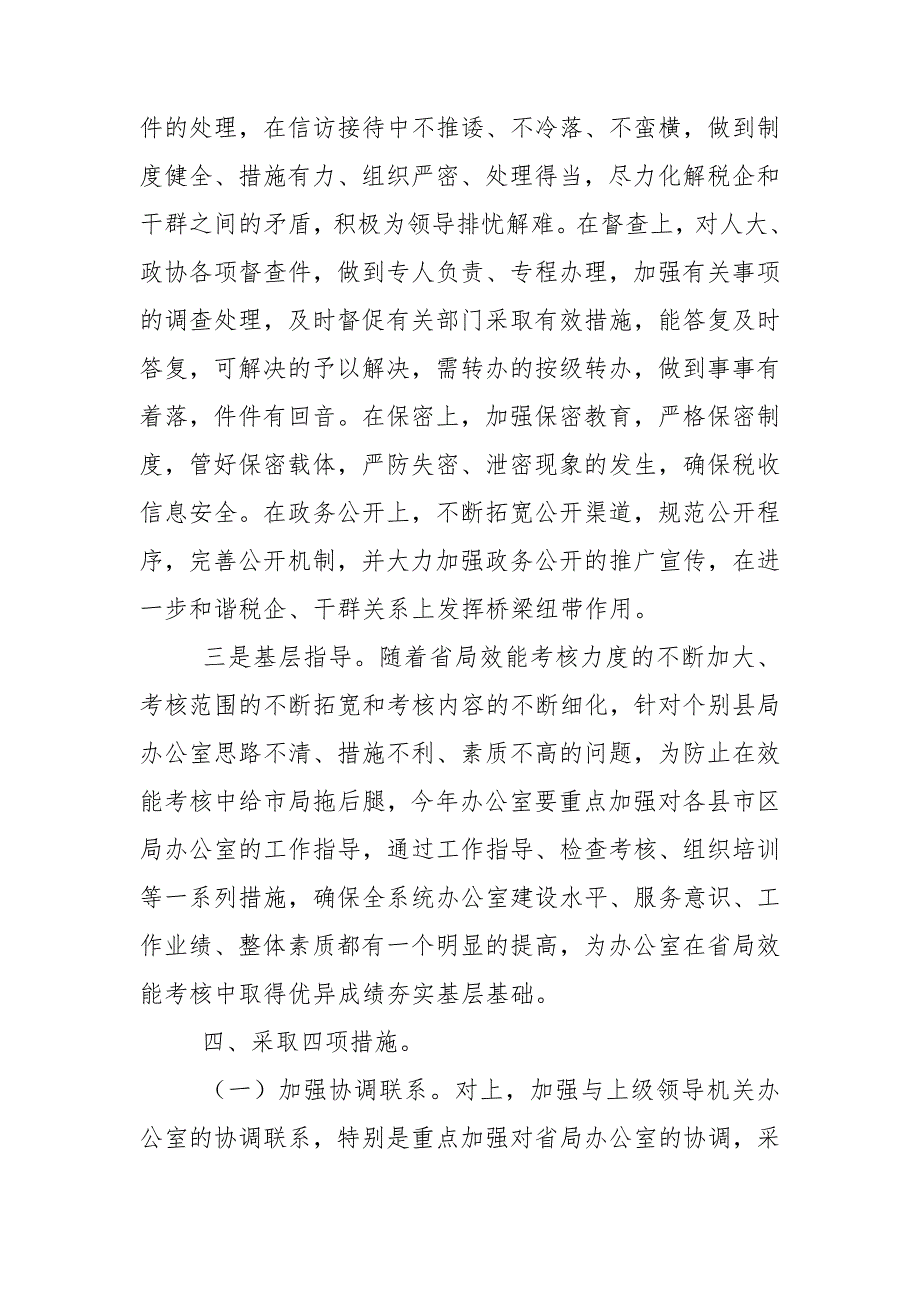 件的处理，在信访接待中不推诿、不冷落、不蛮横，做到制
度健全、措施有力、组织严密、处理得当，尽力化解税企和
干群之间的矛盾，积极为领导排忧解难。在督查上，对人大、
政协各项督查件，做到专人负责、专程办理，加强有关事项
的调查处理，及时督促有关部门采取有效措施，能答复及时
答复，可解决的予以解决，需转办的按级转办，做到事事有
着落，件件有回音。在保密上，加强保密教育，严格保密制
度，管好保密载体，严防失密、泄密现象的发生，确保税收
信息安全。在政务公开上，不断拓宽公开渠道，规范公开程
序，完善公开机制，并大力加强政务公开的推广宣传，在进
一步和谐税企、干群关系上发挥桥梁纽带作用。
三是基层指导。随着省局效能考核力度的不断加大、
考核范围的不断拓宽和考核内容的不断细化，针对个别县局
办公室思路不清、措施不利、素质不高的问题，为防止在效
能考核中给市局拖后腿，今年办公室要重点加强对各县市区
局办公室的工作指导，通过工作指导、检查考核、组织培训
等一系列措施，确保全系统办公室建设水平、服务意识、工
作业绩、整体素质都有一个明显的提高，为办公室在省局效
能考核中取得优异成绩夯实基层基础。
四、采取四项措施。
（一）加强协调联系。对上，加强与上级领导机关办
公室的协调联系，特别是重点加强对省局办公室的协调，采